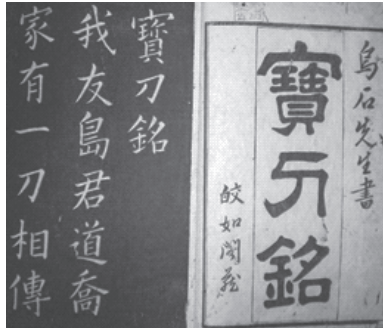 烏石先生書
寶刀銘
皎如閣藏
寶刀銘
我友島君道喬
家有一刀相傳